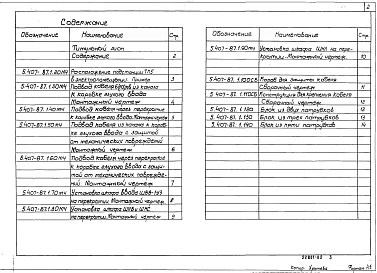 2
Содержание
Обозначение Наименование Стр.
Титульный лист
Содержание 2
5.407-87.1.20МЧ Расположение подстанции ТПБ
в электропомещении. Пример 3
5.407-87.1.30МЧ Подвод кабеля из канала
к коробке глухого ввода
Монтажный чертеж 4
5.407-87.1.40МЧ Подвод кабеля через перекрытие
к коробке глухого ввода. Монтажный чертеж 5
5.407-87.1.50МЧ Подвод кабеля из канала к короб-
ке глухого ввода с защитой
от механических повреждений
Монтажный чертеж 6
5.407-87.1.60МЧ Подвод кабеля через перекрытие
к коробке глухого ввода с защи-
той от механических поврежде-
ний. Монтажный чертеж 7
5.407-87.1.70МЧ Установка шкафа ввода
на перекрытии. Монтажный чертеж 8
5.407-87.1.80МЧ Установка шкафа
на перекрытии. Монтажный чертеж 9
Обозначение Наименование Стр.
5.407-87.1.90МЧ Установка шкафа на пере-
крытии. Монтажный чертеж 10
5.407-87.1.100СБ Короб для защиты кабеля
Сборочный чертеж 11
5.407-87.1.110СБ Конструкция для крепления кабеля
Сборочный чертеж 12
5.407-87.1.120 Блок из двух патрубков 13
5.407-87.1.130 Блок из трех патрубков 14
5.407-87.1.140 Блок из пяти патрубков 14
3
Копир. Формат А3